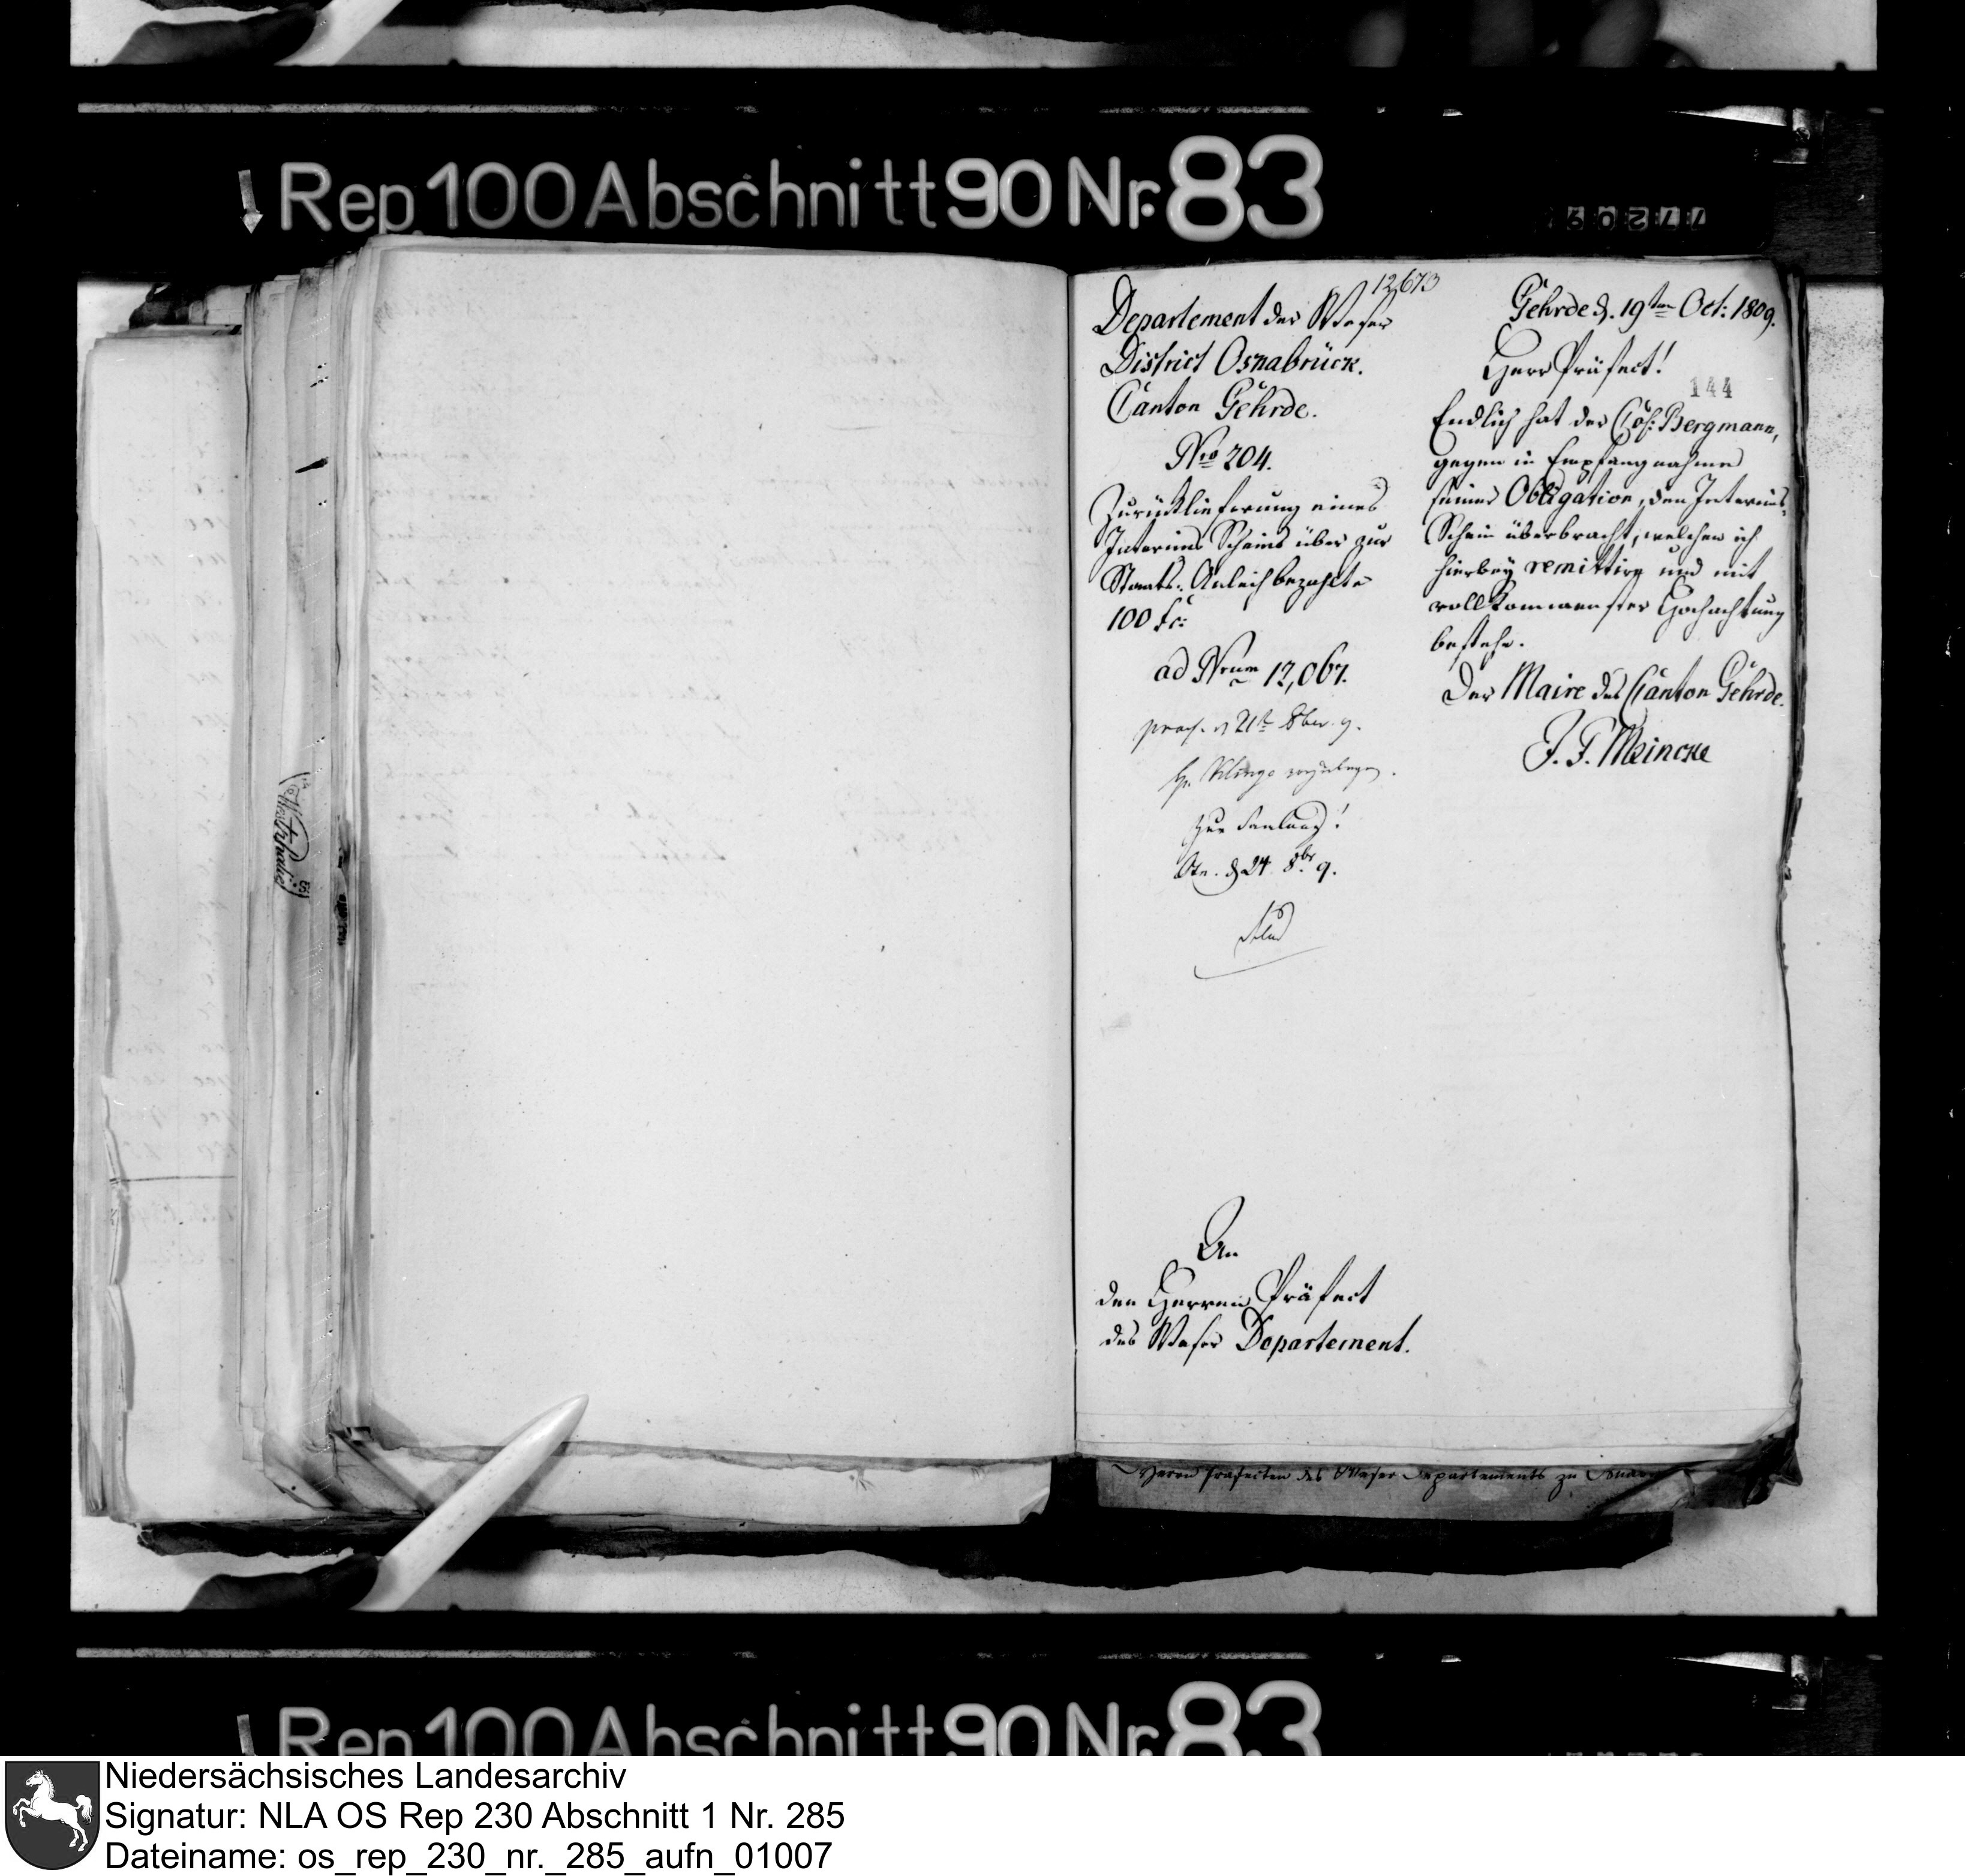 Rep. 100 Abschnitt 90 Nr. 83
77209
12,673
Departement der Weser
District Osnabrück.
Canton Gehrde.
Nro 204.
Zurücklieferung eines
Interims Scheins über zur
Staats-Anleih bezahlte
100 fc:
ad Nrum 12,067.
praes. d 21t 8ber. 9.
zur Samlung!
Osn. d 24 8br 9.
An
den Herren Präfect
des Weser Departement.
Gehrde d. 19ten Oct: 1809.
Herr Präfect!
144
Endlich hat der Col: Bergmann,
gegen in Empfangnahme
seiner Obligation, den Interims-
Schein überbracht, welchen ich
hierbey remittire und mit
vollkommenster Hochachtung
bestehe.
Der Maire des Canton Gehrde.
J. F. Meincke
Herrn Präfecten des Weser Departements zu
Rep. 100 Abschnitt 90 Nr. 83
Niedersächsisches Landesarchiv
Signatur: NLA OS Rep 230 Abschnitt 1 Nr. 285
Dateiname: os_rep_230_nr._285_aufn_01007